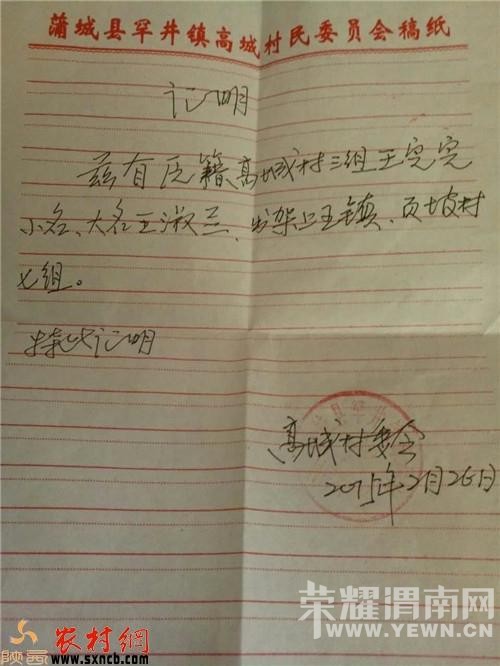 蒲城县罕井镇高城村民委员会稿纸
证明
兹有原籍高城村三组王完完
小名、大名王淑兰、出架上王镇、页坡村
七组。
特此证明
高城村委会
2015年2月26日
荣耀渭南网
WWW.YEWN.CN
陕西农村網
www.sxncb.com